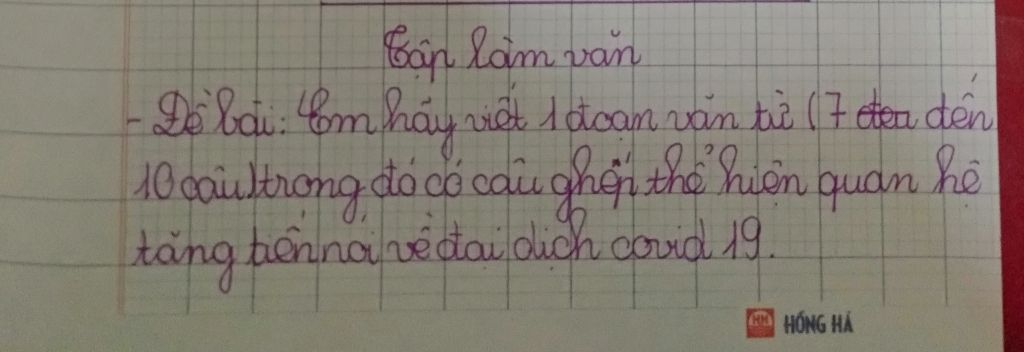 Tập làm văn
- Đề bài: Em hãy viết 1 đoạn văn từ (7 đến đến
10 câu) trong đó có câu ghép thể hiện quan hệ
tăng tiến nói về đại dịch covid 19.
HH HỒNG HÀ